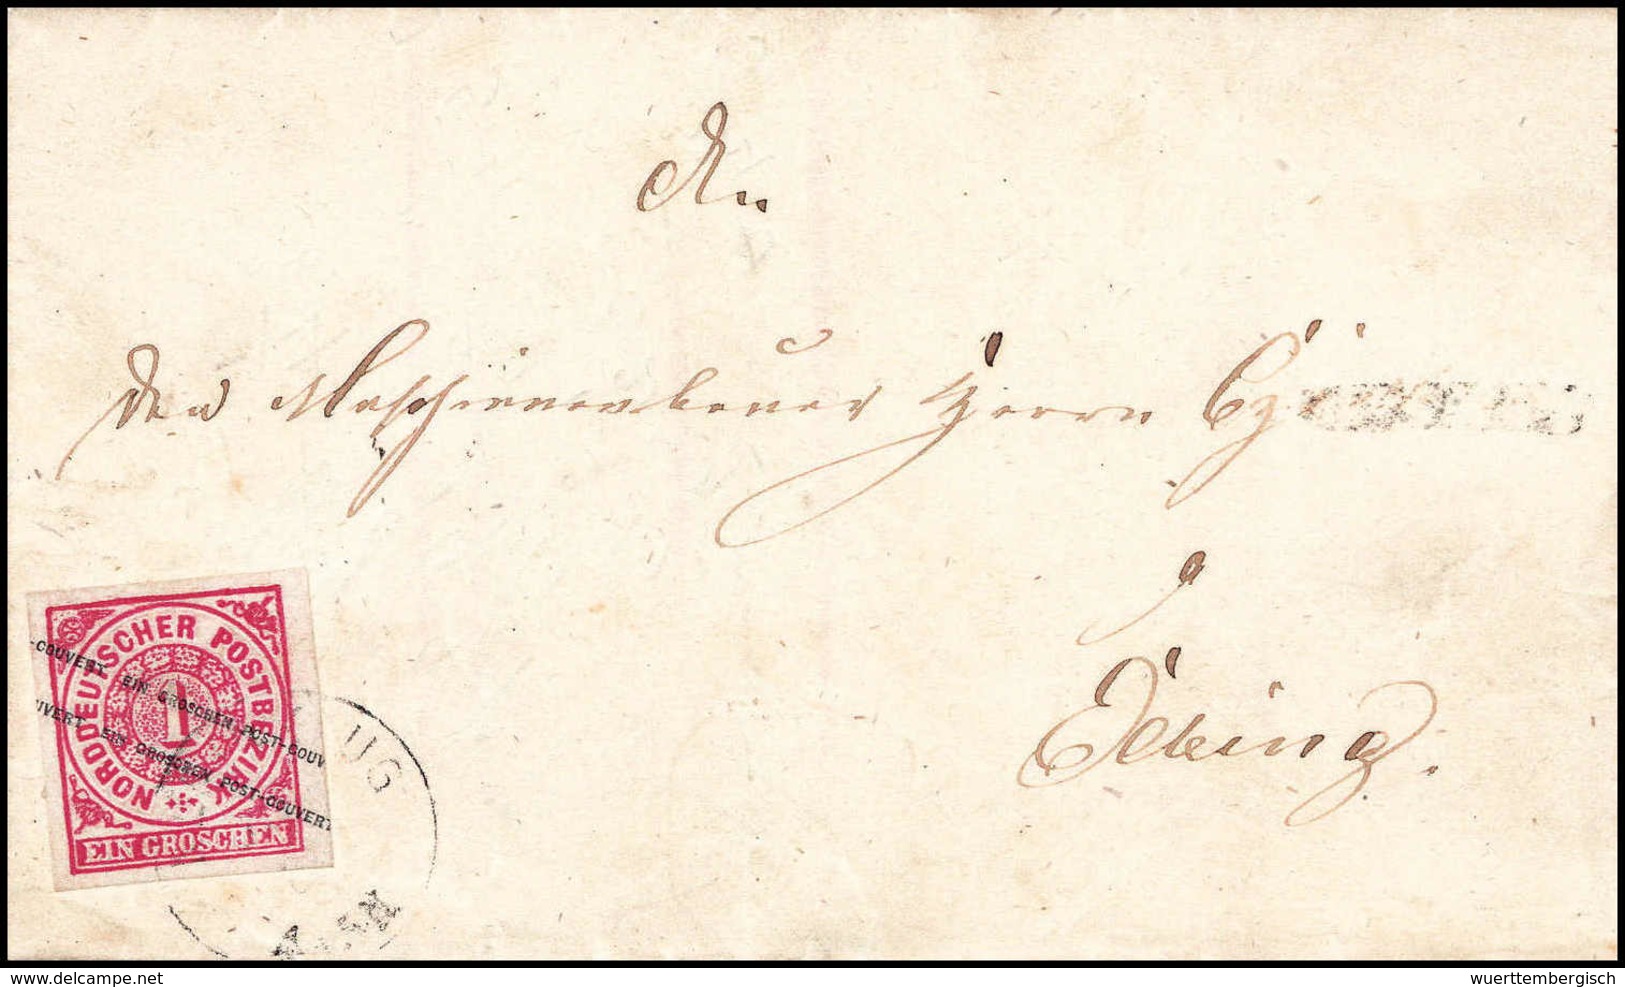 An
den Maschienenbauer Herrn
in
Elbing.
NORDDEUTSCHER POSTBEZIRK
1
EIN GROSCHEN
-COUVERT EIN GROSCHEN POST-COUV
UVERT EIN GROSCHEN POST-COUVERT
UG
wuerttembergisch